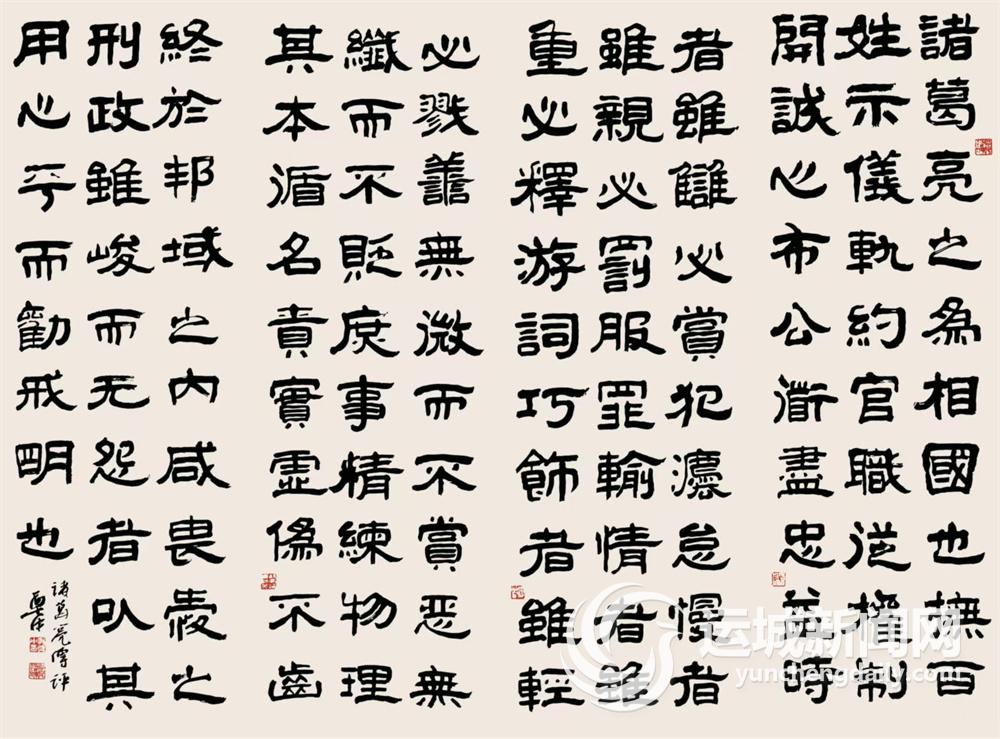 諸葛亮之為相國也撫百
姓示儀軌約官職從權制
開誠心布公衟盡忠益時
者雖讎必賞犯灋怠慢者
雖親必罰服罪輸情者雖
重必釋游詞巧飾者雖輕
必戮譱無微而不賞惡無
纖而不貶庶事精練物理
其本循名責實虛偽不齒
終於邦域之內咸畏愛之
刑政雖峻而无怨者以其
用心平而勸戒明也
諸葛亮傳評
运城新闻网
yunchengdaily.com